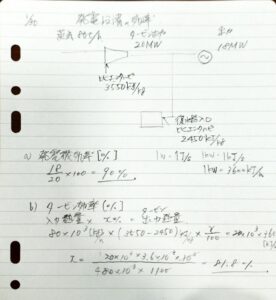 発電設備の効率
蒸気 80t/h
タービン出力
20MW
出力
18MW
比エンタルピ
3550kJ/kg
復水器入口
比エンタルピ
2450kJ/kg
a) 発電機効率[%]
18/20 ×100 = 90%
1W=1J/s 1kW=1kJ/s
1kWh=3600kJ
b) タービン効率[%]
入力熱量 × x% = タービン出力熱量
80×10³ [kg/h] × (3550-2450) kJ/kg × x/100 = 20×10³×360
x = 20×10³×3.6×10³×10² / 80×10³×1100 = 81.8%